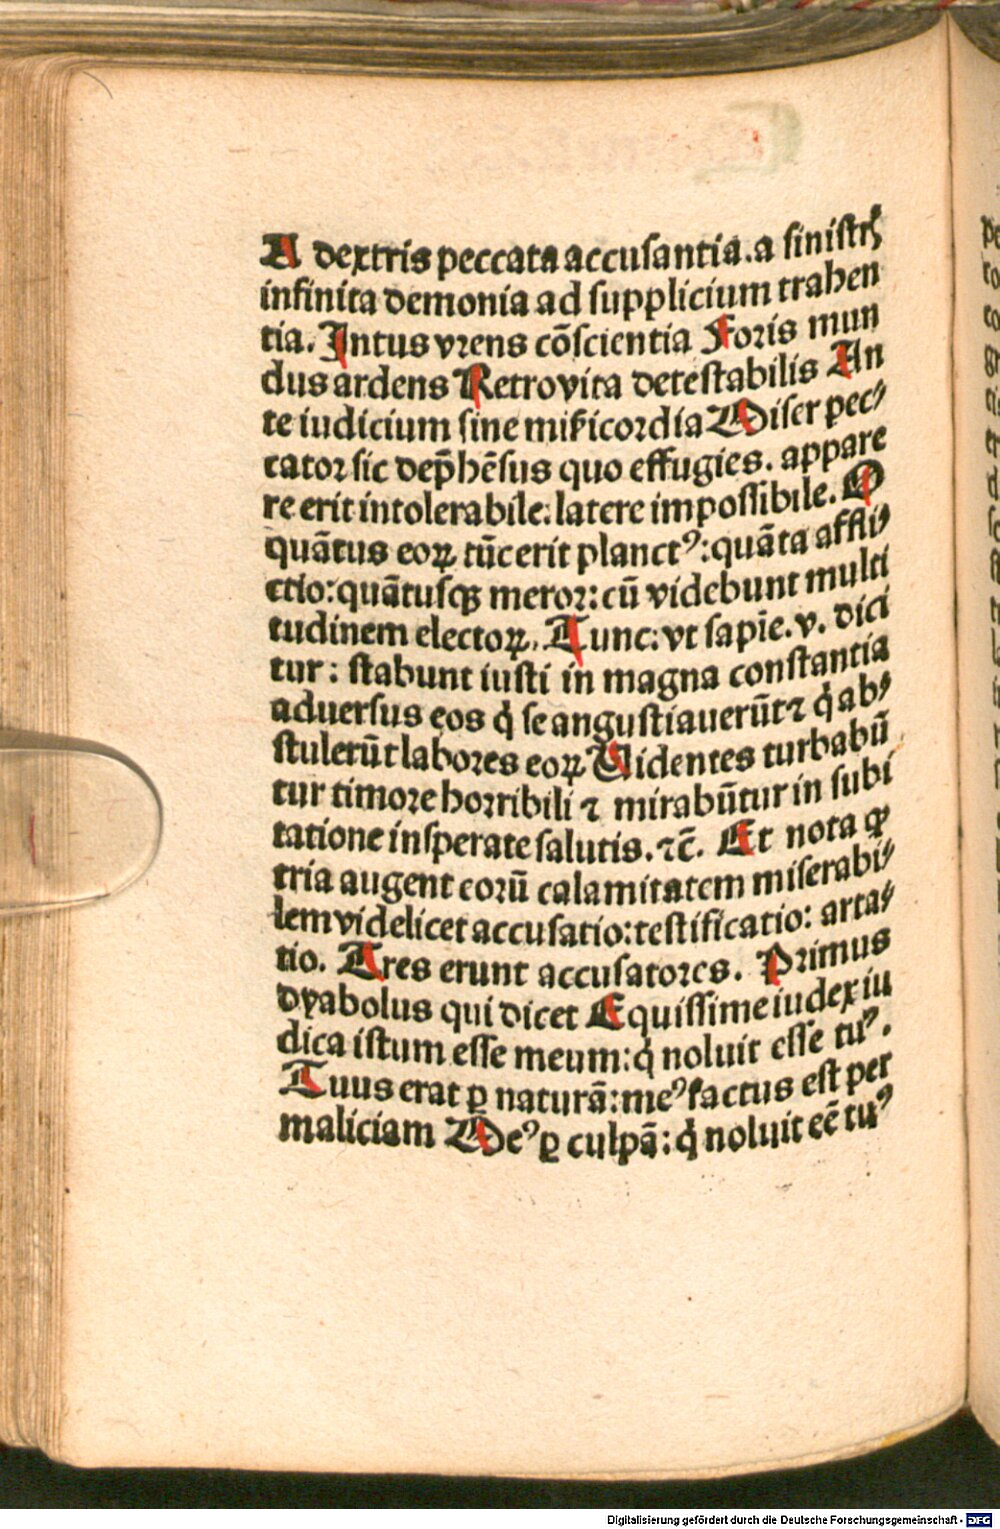 A dextris peccata accusantia.a sinistrꝭ
infinita demonia ad supplicium trahen
tia. Intus vrens cōscientia Foris mun
dus ardens Retrovita detestabilis An
te iudicium sine mißicordia Miser pec⸗
cator sic dep̄hēsus quo effugies. appare
re erit intolerabile: latere impossibile. O
quātus eoꝝ tūc erit planctꝰ: quāta affli⸗
ctio: quātusqꝫ meror: cū videbunt multi
tudinem electoꝝ. Tunc: vt sapīe. v. dici
tur: stabunt iusti in magna constantia
aduersus eos q̇ se angustiauerūt ⁊ q̇ ab⸗
stulerūt labores eoꝝ Uidentes turbabū
tur timore horribili ⁊ mirabūtur in subi
tatione insperate salutis. ⁊c̄. Et nota ꝙ
tria augent eorū calamitatem miserabi⸗
lem videlicet accusatio: testificatio: arta⸗
tio. Tres erunt accusatores. Primus
dyabolus qui dicet Equissime iudex iu
dica istum esse meum: q̇ noluit esse tuꝰ.
Tuus erat ꝑ naturā: meꝰ factus est per
maliciam Meꝰ ꝑ culpā: q̇ noluit eē tuꝰ
Digitalisierung gefördert durch die Deutsche Forschungsgemeinschaft - DFG